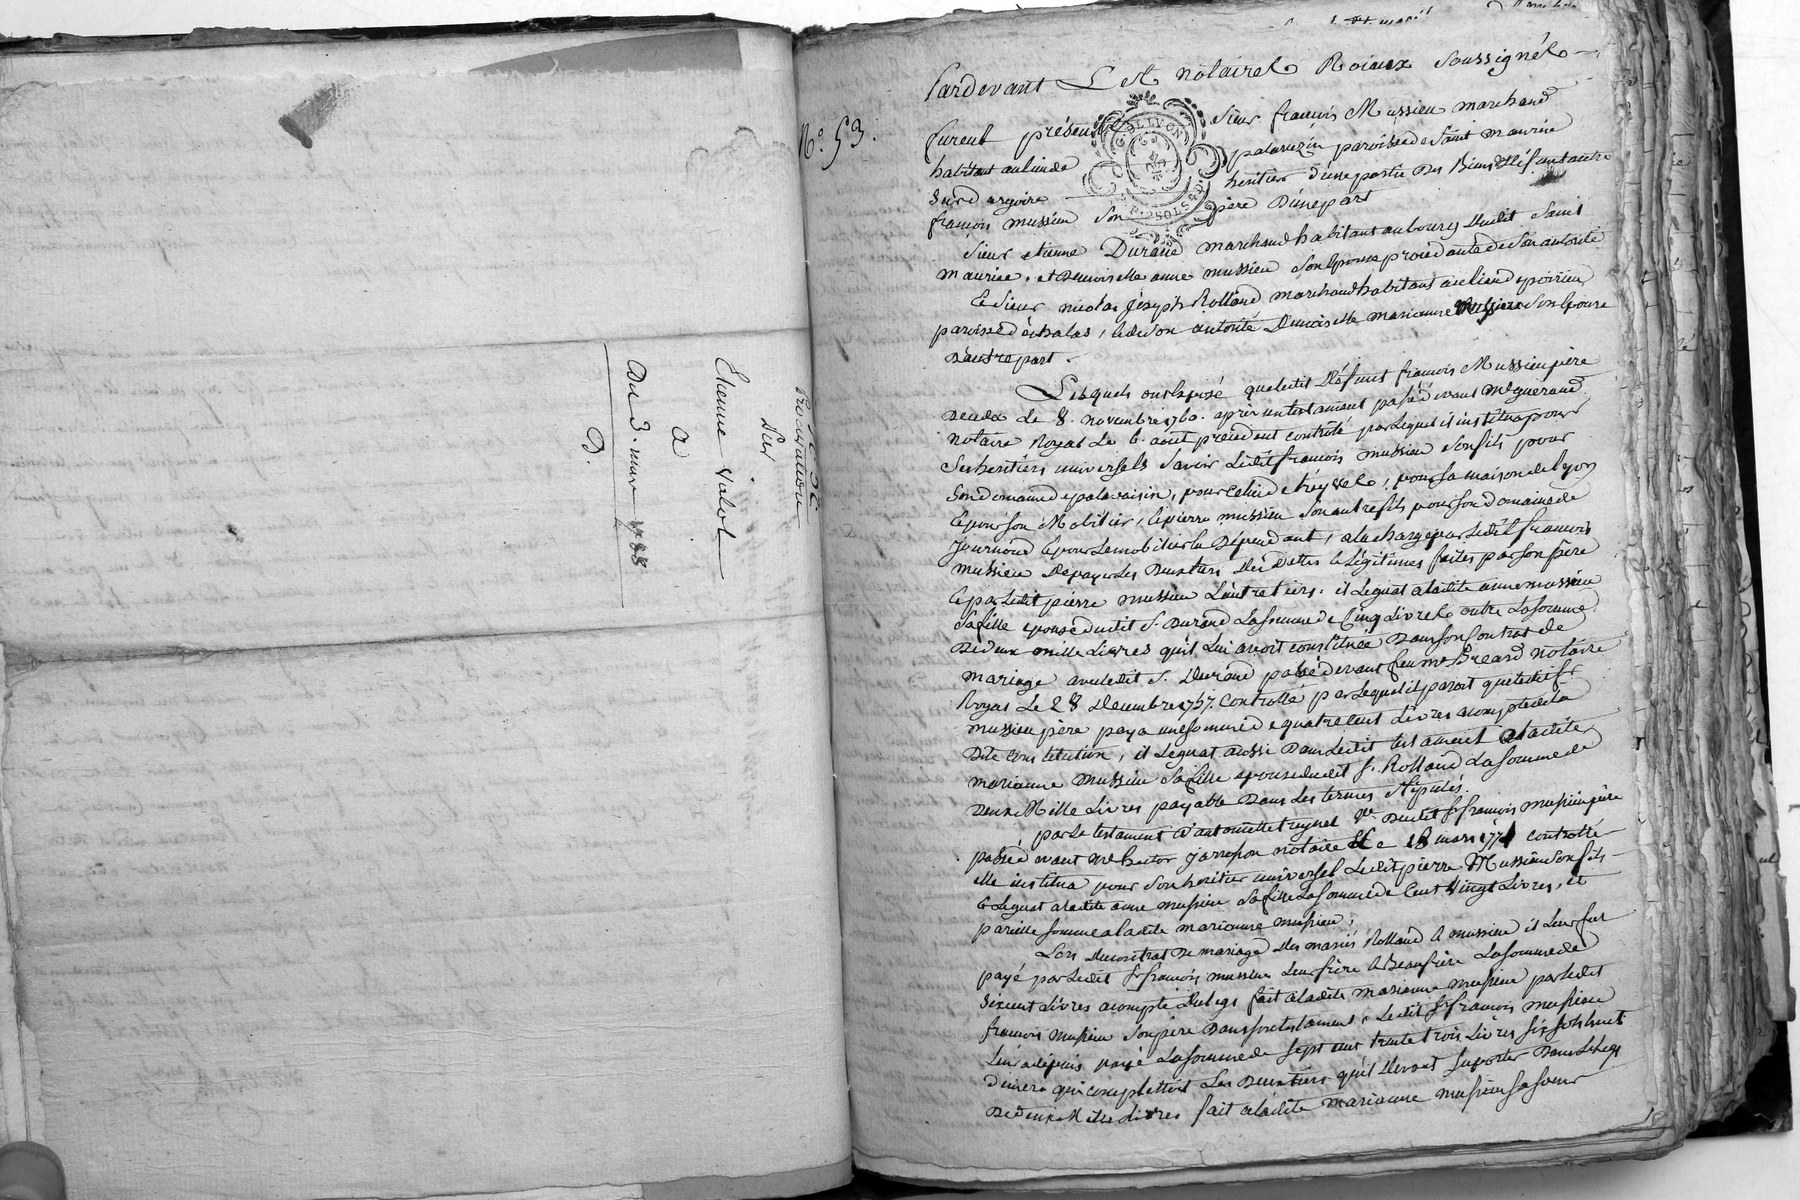 N.° 53.
Procuration
Par
Etienne Valot
A
Du 3. mars 1788
D.
Pardevant Les notaires Roiaux soussignés
furent présents Sieur francois Mussieu marchand
habitant au lieu de palavezin paroisse de Saint maurice
Sur d argoire héritier d'une partie des Biens de défunt autre
francois mussieu Son père D'une part
Sieur etienne Durand marchand habitant au bourg dudit Saint
maurice, et Demoiselle anne mussieu Son Epouse procédante de Son autorité
Le Sieur nicolas Joseph Rolland marchand habitant au lieu
paroisse d'échalas, & de Son autorité Demoiselle marianne Mussieu Son Epouse
D'autre part.
Lesquels ont Exposé que ledit Défunt francois Mussieu père
deceda Le 8. novembre 1760. après un testament passé devant Me guerand
notaire Royal Le 6. aout précédent controlé par Lequel il institua pour
Ses heritiers universels Savoir Ledit francois mussieu Son fils pour
Son domaine de palavaisin, pour Celui de treyve, pour Sa maison de Lyon
& pour Son Mobilier, & pierre mussieu Son autre fils pour Son domaine de
Journoud & pour Le mobilier en Dépendant, a la charge par Ledit francois
mussieu De payer Les Deux tiers des Dettes & Légitimes faites par Son père
& par Ledit pierre mussieu L'autre tiers. il Leguat a ladite anne mussieu
Sa fille epouse dudit S. Durand La Somme de Cinq Livres outre La Somme
De Deux mille Livres qu'il Lui avoit constituée Dans Son Contrat de
mariage avec ledit S. Durand passé devant feu Me Breard notaire
Royal Le 28 Decembre 1757. Controllé par Lequel il paroit que ledit Sr
mussieu père paya une Somme de quatre cent Livres acompte de la
Dite Constitution, il Leguat aussi Dans Ledit testament a Ladite
marianne Mussieu Sa fille epouse dudit S. Rolland La Somme de
Deux Mille Livres payable Dans Les termes Stipulés.
par Le testament d'antoinette treynel Ve. Dudit Sr francois mussieu père
passé devant Me hector Jarreson notaire Le 18 mars 1771 controllé
Elle institua pour Son heritier universel Ledit pierre Mussieu Son fils
& Leguat a ladite anne mussieu Sa fille La Somme de Cent Vingt Livres, et
pareille Somme a ladite marianne mussieu.
Lors du contrat De mariage Des mariés Rolland & mussieu il Leur fut
payé par Ledit Sr francois mussieu Leur frère & Beaufrère La Somme de
Six cent Livres acompte du Legs fait a ladite marianne mussieu par ledit
francois mussieu Son père Dans Son testament, Ledit Sr francois mussieu
Leur a depuis payé La Somme de Sept cent trente trois Livres six sols huit
deniers qui complettent Les Deux tiers qu'il Devoit Suporter Dans Le Legs
De Deux Mille Livres fait a ladite marianne mussieu Sa Soeur